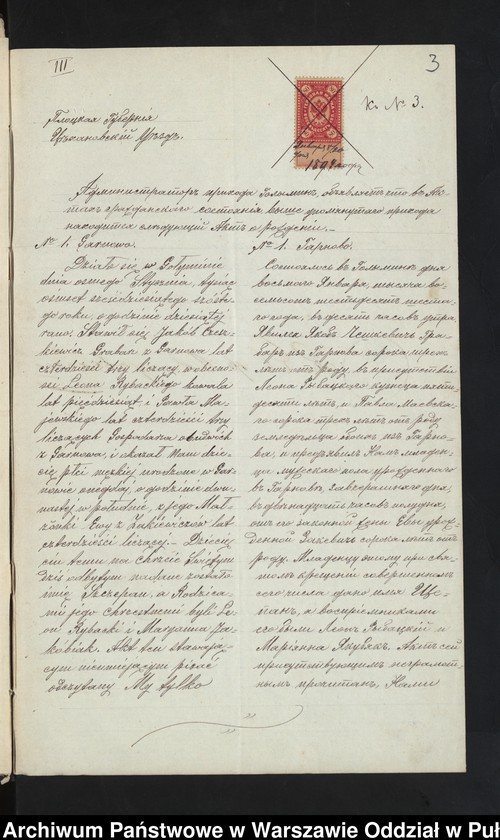 III
3
К. № 3.
Плоцкая Губернія
Цѣхановскій Уѣздъ.
1891
Администраторъ прихода Голыминъ, объявляетъ что въ Ак-
тахъ гражданскаго состоянія выше упомянутаго прихода
находится слѣдующій Актъ о рожденіи.
№ 1. Garnowo.
Działo się w Gołyminie
dnia ósmego Stycznia, tysiąc
ośmset sześćdziesiątego szóste-
go roku, o godzinie dziesiątej
rano; Stawił się Jakób
kiewicz Grabarz z Garnowa lat
czterdzieści trzy liczący, w obecno-
ści Leona Rybackiego kowala
lat pięćdziesiąt i Pawła Ma-
jewskiego lat czterdzieści trzy
liczących Gospodarza obudwóch
z Garnowa, i okazał Nam dziec-
ię płci męzkiej urodzone w Gar-
nowie onegdaj o godzinie dwu-
nastej w południe, z jego Mał-
żonki Ewy z Zakiewiczów lat
czterdzieści liczącej. Dziecię-
ciu temu na Chrzcie Świętym
dziś odbytym nadane zostało
imię Szczepan, a Rodzica-
mi jego Chrzestnemi byli Le-
on Rybacki i Maryanna Ja-
kóbiak. Akt ten stawają-
cym nieumiejącym pisać
odczytany My tylko
№ 1. Гарново.
Состоялось въ Голыминѣ дня
восьмаго Января, тысяча во-
семьсотъ шестьдесятъ шеста-
го года, въ десять часовъ утра,
Явился Яковъ Гра-
барь изъ Гарнова сорока трехъ
лѣтъ отъ роду, въ присутствіи
Леона Рыбацкаго кузнеца пяти-
десяти лѣтъ, и Павла Маевска-
го сорока трехъ лѣтъ отъ роду
земледѣльца обоихъ изъ Гарно-
ва, и предъявилъ Намъ младен-
ца мужескаго пола, урожденнаго
въ Гарновѣ, завчерашняго дня,
въ двѣнадцать часовъ полудня,
отъ его законной жены Евы урож-
денной Закевичъ сорока лѣтъ отъ
роду. Младенцу этому при свя-
томъ крещеніи совершенномъ
сего числа дано имя Ще-
панъ, а воспріемниками
его были Леонъ Рыбацкій и
Маріянна Якубякъ. Актъ сей
присутствующимъ неграмот-
нымъ прочитанъ, Нами
Archiwum Państwowe w Warszawie Oddział w Puł